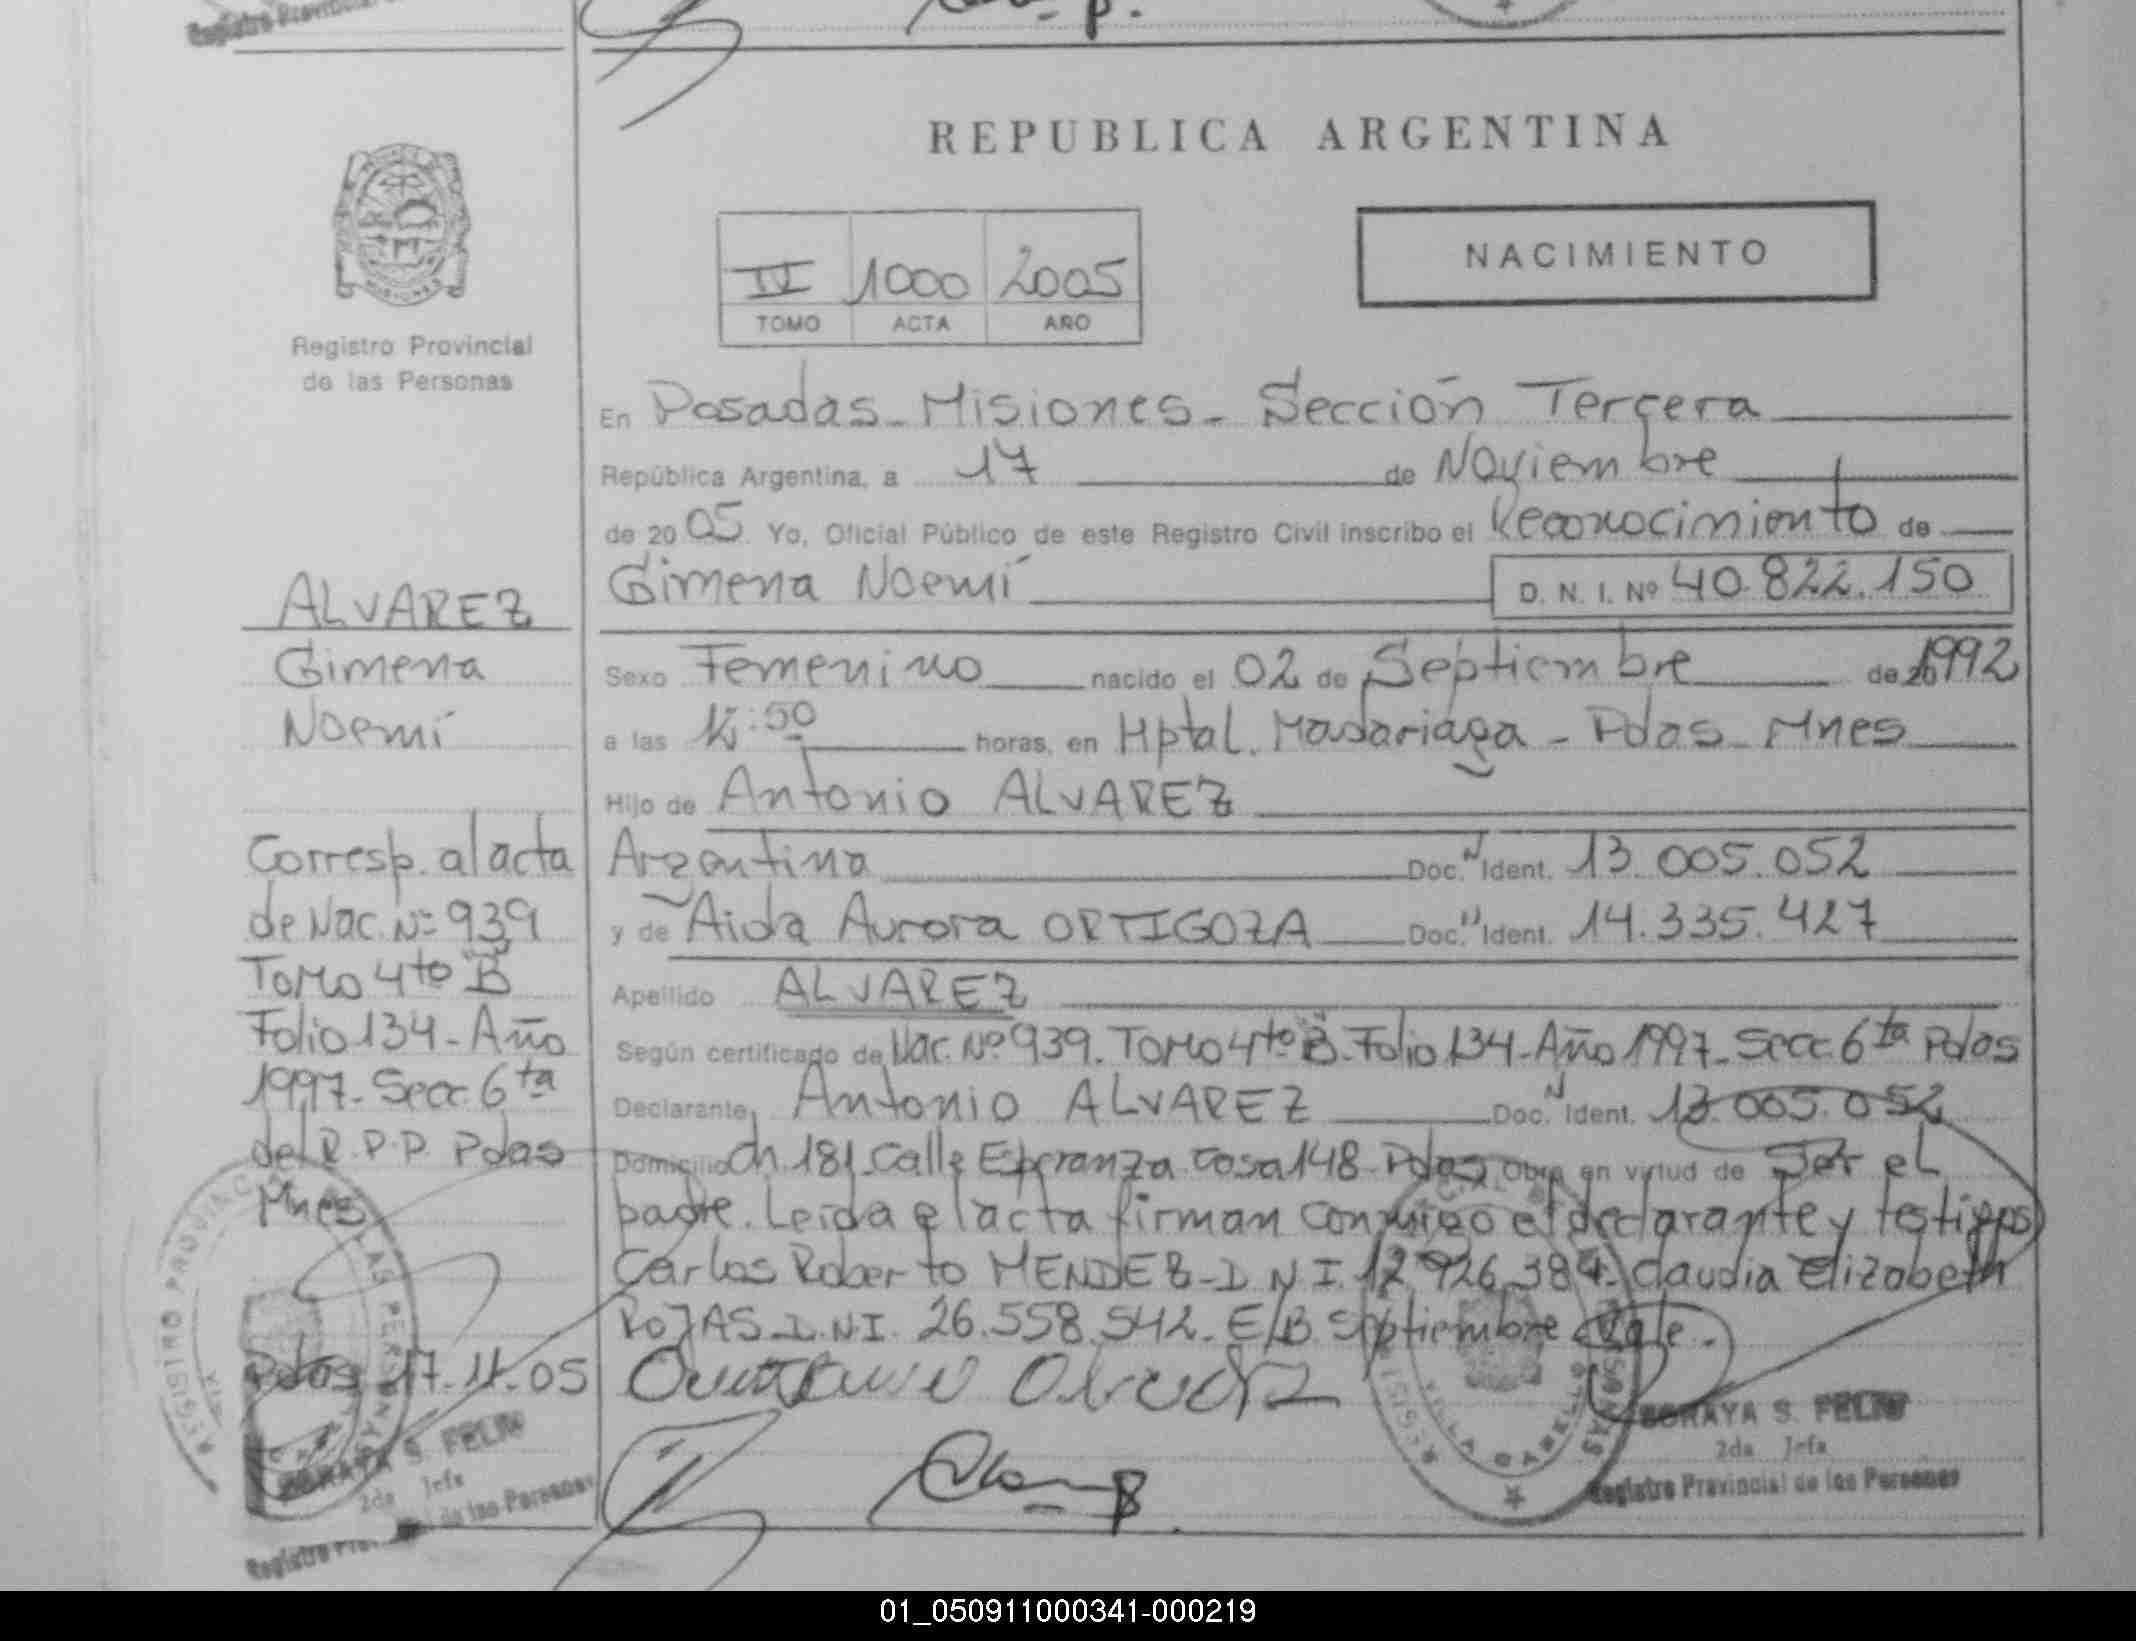 REPUBLICA ARGENTINA
NACIMIENTO
IV 1000 2005
TOMO ACTA AÑO
Registro Provincial
de las Personas
En Posadas - Misiones - Sección Tercera
República Argentina, a 17 de Noviembre
de 2005. Yo, Oficial Público de este Registro Civil inscribo el Reconocimiento de
Gimena Noemí D. N. I. Nº 40.822.150
ALVAREZ
Gimena
Noemí
Sexo Femenino nacido el 02 de Septiembre de 1992
a las :50 horas, en Hptal. Madariaga - Pdas - Mnes
Hijo de Antonio ALVAREZ
Argentina Doc. N Ident. 13.005.052
y de Aida Aurora ORTIGOZA Doc. " Ident. 14.335.427
Apellido ALVAREZ
Según certificado de Nac. Nº 939. Tomo 4to B. Folio 134 - Año 1997 - Secc. 6ta Pdas
Declarante, Antonio ALVAREZ Doc. N Ident. 13.005.052
Domicilio Ch. 181 Calle Esperanza Casa 148 - Pdas Obra en virtud de Ser el
padre. Leida el acta firman conmigo el declarante y testigos
Carlos Roberto MENDEZ - D.N.I. 12.926.384 - Claudia Elizabeth
ROJAS D.NI. 26.558.542. E/B. Septiembre Vale.
Corresp. al acta
de Nac. Nº 939
Tomo 4to B
Folio 134 - Año
1997 - Secc. 6ta
del R.P.P. Pdas
Mnes
Pdas 17.11.05
SORAYA S. FELIU
2da Jefa
Registro Provincial de las Personas
SORAYA S. FELIU
2da Jefa
Registro de las Personas
REGISTRO PROVINCIAL DE LAS PERSONAS
VILLA CABELLO
01_050911000341-000219